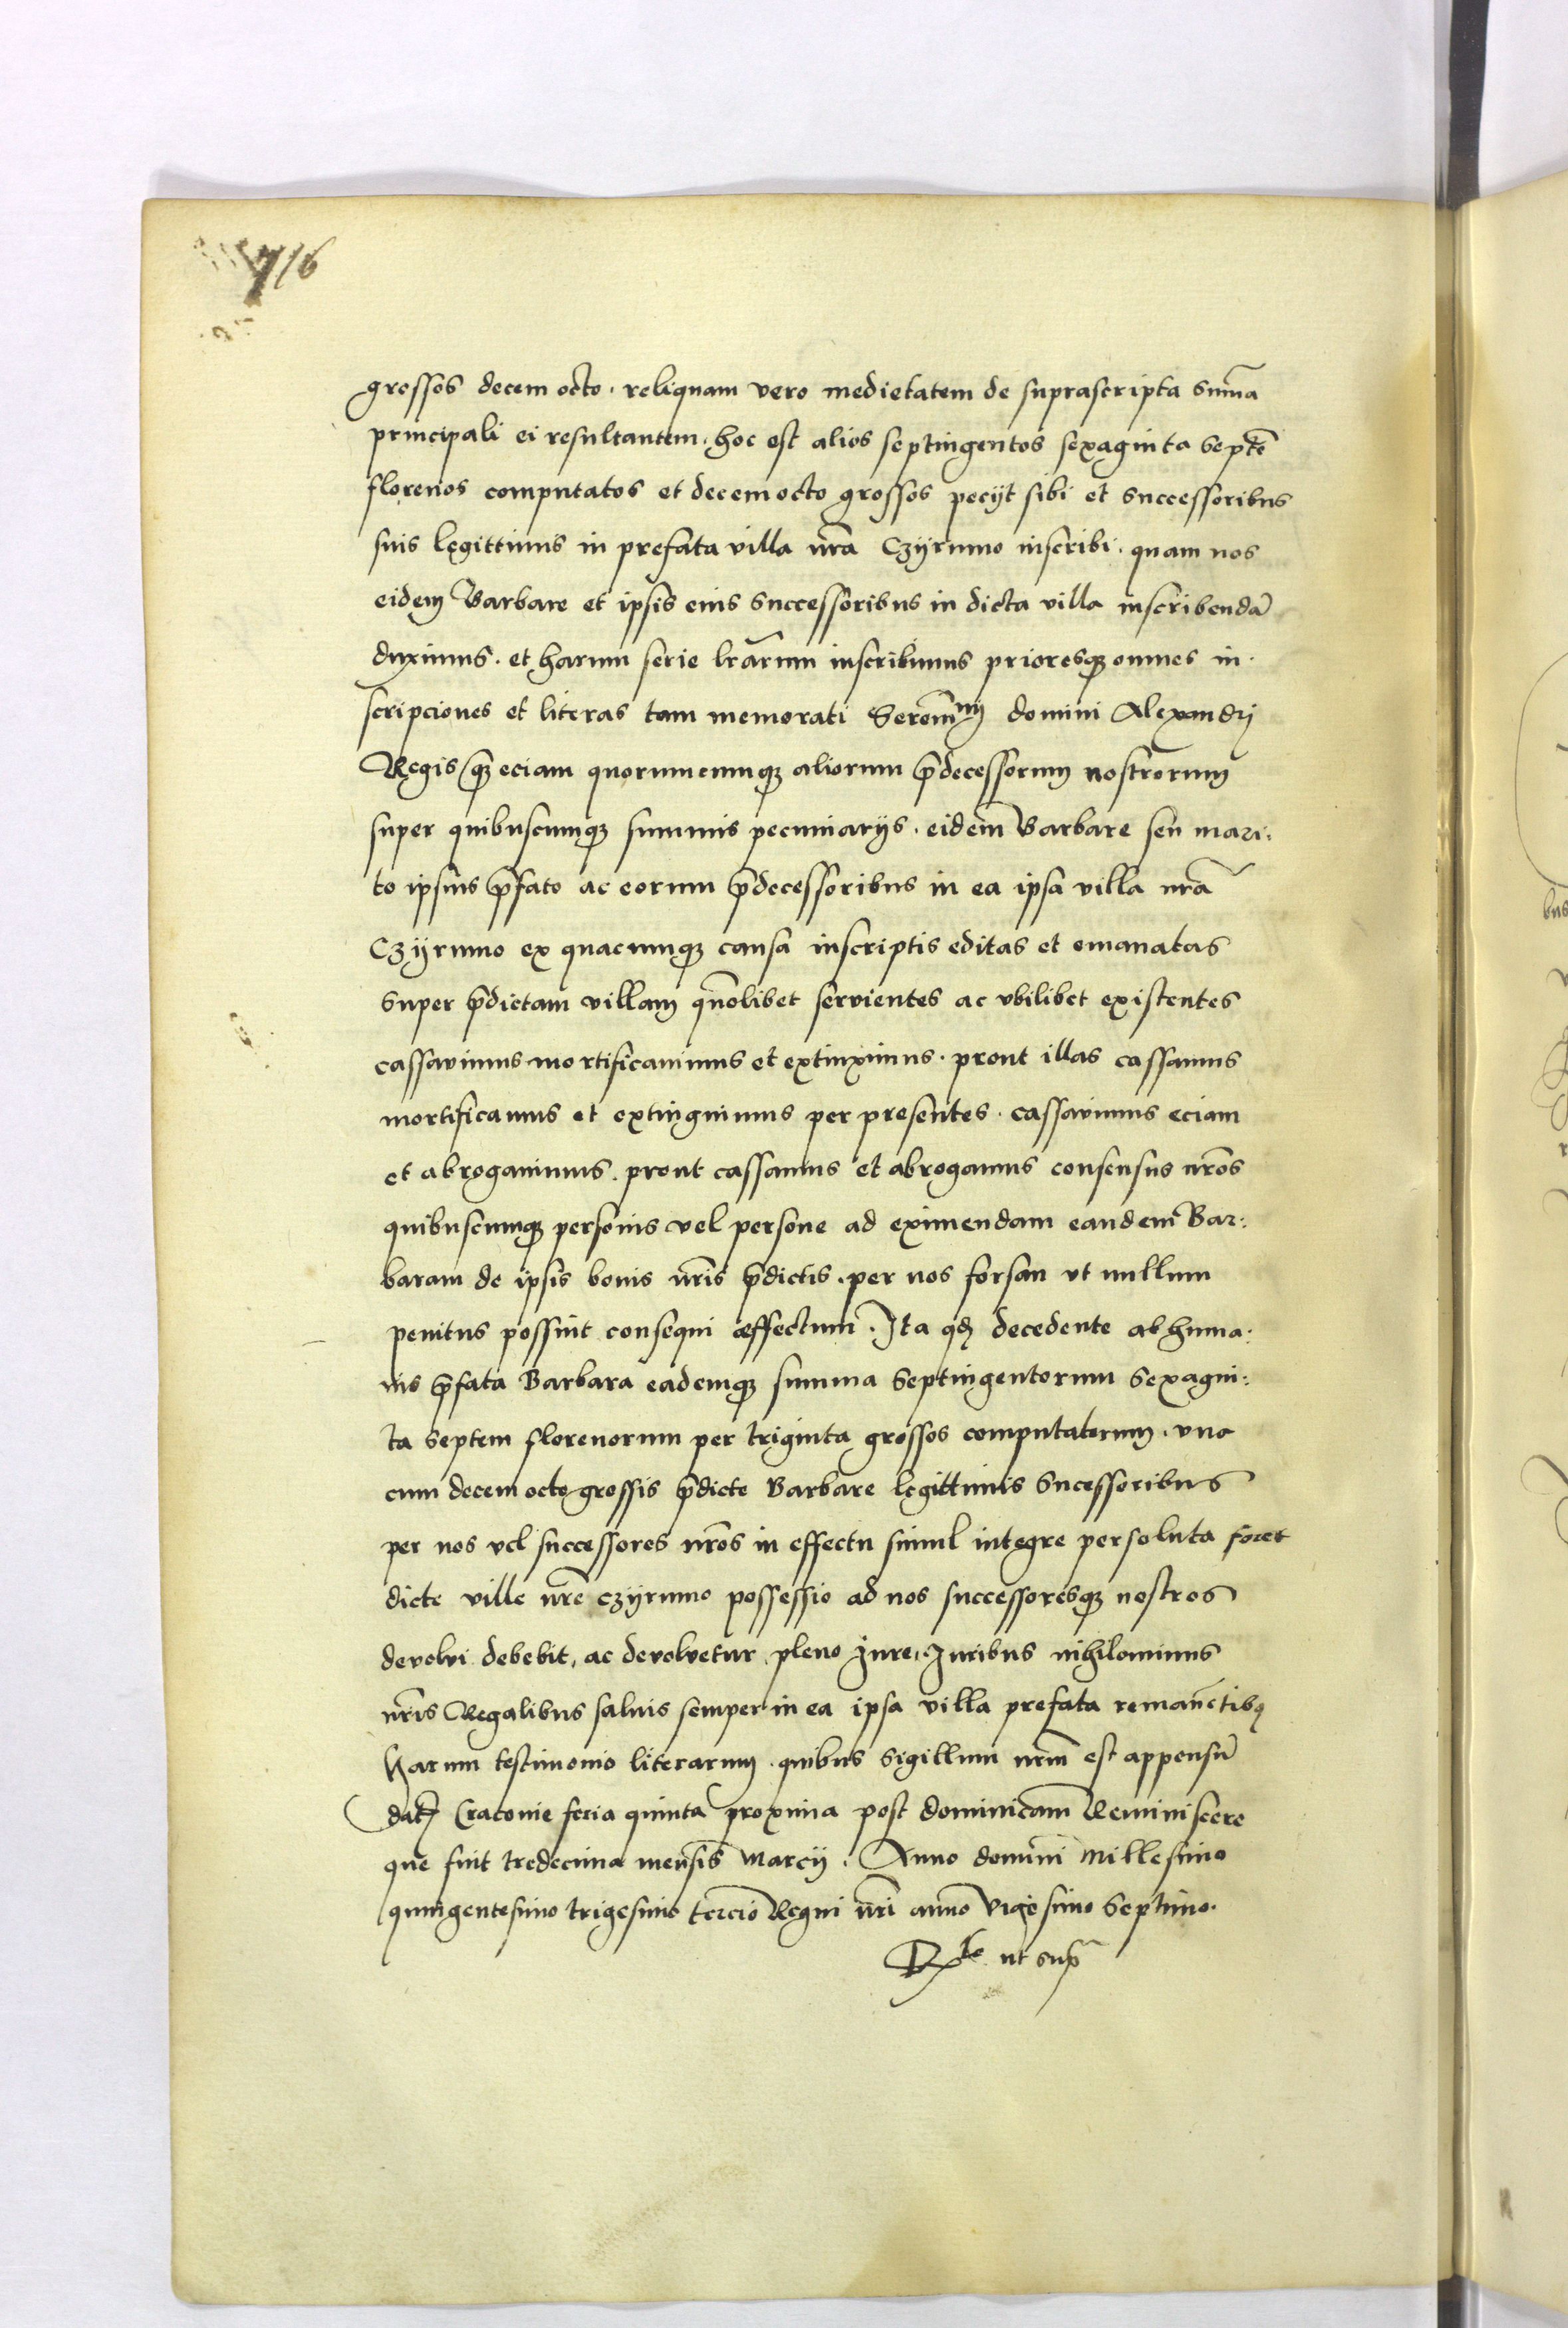 716
grossos decem octo. reliquam vero medietatem de suprascripta sum̃a
principali ei resultantem. hoc est alios septingentos sexaginta septẽ
florenos computatos et decem octo grossos pecijt sibi et successoribus
suis legittimis in prefata villa nr̃a Czyrmno inscribi. quam nos
eidem Barbare et ipsis eius successoribus in dicta villa inscribendã
duximus. et harum serie lr̃arum inscribimus prioresq̷ omnes in.
scripciones et literas tam memorati Seren̄mi domini Alexandri
Regis q̷ eciam quorumcumq̷ aliorum p̃decessorum nostrorum
super quibuscumq̷ summis pecuniarijs. eidem Barbare seu mari:
to ipsius p̃fato ac eorum p̃decessoribus in ea ipsa villa nr̃a
Czyrmno ex quacumq̷ causa inscriptis editas et emanatas
super p̃dictam villam quõlibet servientes ac vbilibet existentes
cassavimus mortificavimus et extinximus. prout illas cassamus
mortificamus et extinguimus per presentes. cassavimus eciam
et abrogavimus. prout cassamus et abrogamus consensus nr̃os
quibuscumq̷ personis vel persone ad eximendam eandem Bar:
baram de ipsis bonis nr̃is p̃dictis. per nos forsan ut nullum
penitus possint consequi effectum. Ita qđ decedente ab huma:
nis p̃fata Barbara eademq̷ summa Septingentorum Sexagin:
ta septem florenorum per triginta grossos computatorum. vna
cum decem octo grossis p̃dicte Barbare legittimis Sucessoribus
per nos vel successores nr̃os in effectu simul integre persoluta foret
dicte ville nr̃e Czyrmno possessio ad nos successoresq̷ nostros
devolvi debebit, ac devolvetur pleno Jure. Juribus nihilominus
nr̃is Regalibus salvis semper in ea ipsa villa prefata remanẽtibꝫ
Harum testimonio literarum. quibus sigillum nr̃m est appensũ
dat̃ Cracovie feria quinta proxima post dominicam Reminiscere
que fuit tredecima mensis Marcij. Anno domini Millesimo
quingentesimo trigesimo tercio Regni nr̃i anno Vigesimo Septimo.
Rͣte ut sup̃